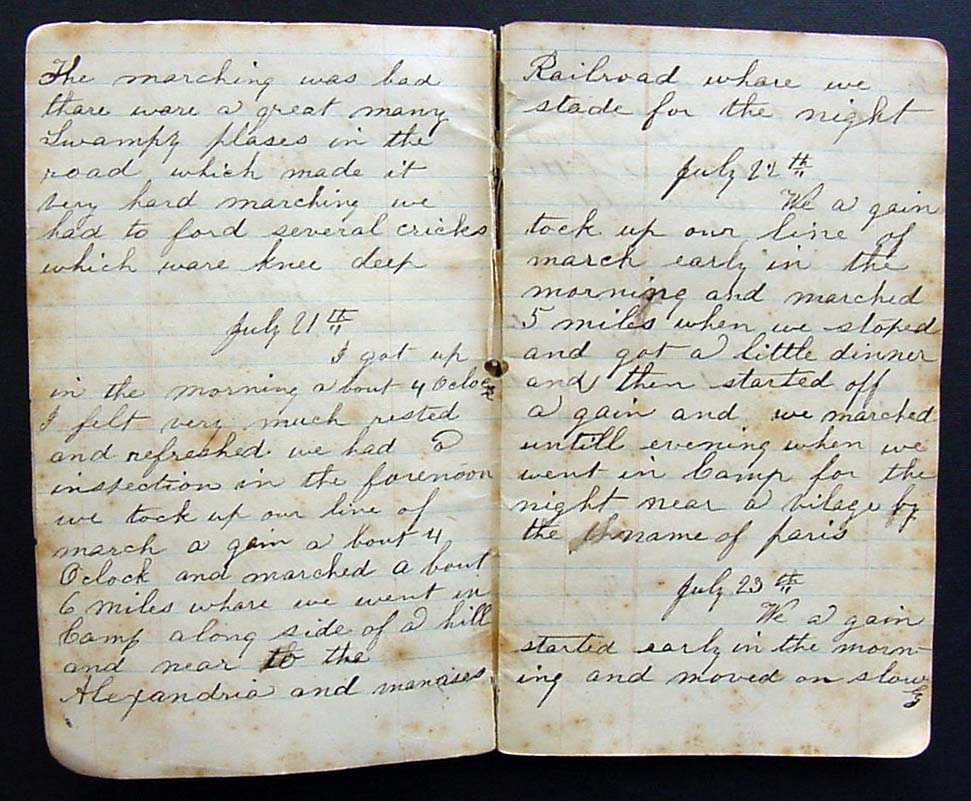 The marching was bad
thare ware a great many
Swampy plases in the
road which made it
very hard marching we
had to ford several cricks
which ware knee deep
July 21th
I got up
in the morning a bout 4 Oclock
I felt very much rested
and refreshed we had a
inspection in the forenoon
we tock up our line of
march a gain a bout 4
Oclock and marched a bout
6 miles whare we went in
Camp along side of a hill
and near to the
Alexandria and manases
Railroad whare we
stade for the night
July 22th
We a gain
tock up our line of
march early in the
morning and marched
5 miles when we stoped
and got a little dinner
and then started off
a gain and we marched
untill evening when we
went in Camp for the
night near a vilage by
the name of paris
July 23th
We a gain
started early in the morn-
ing and moved on slow
ly